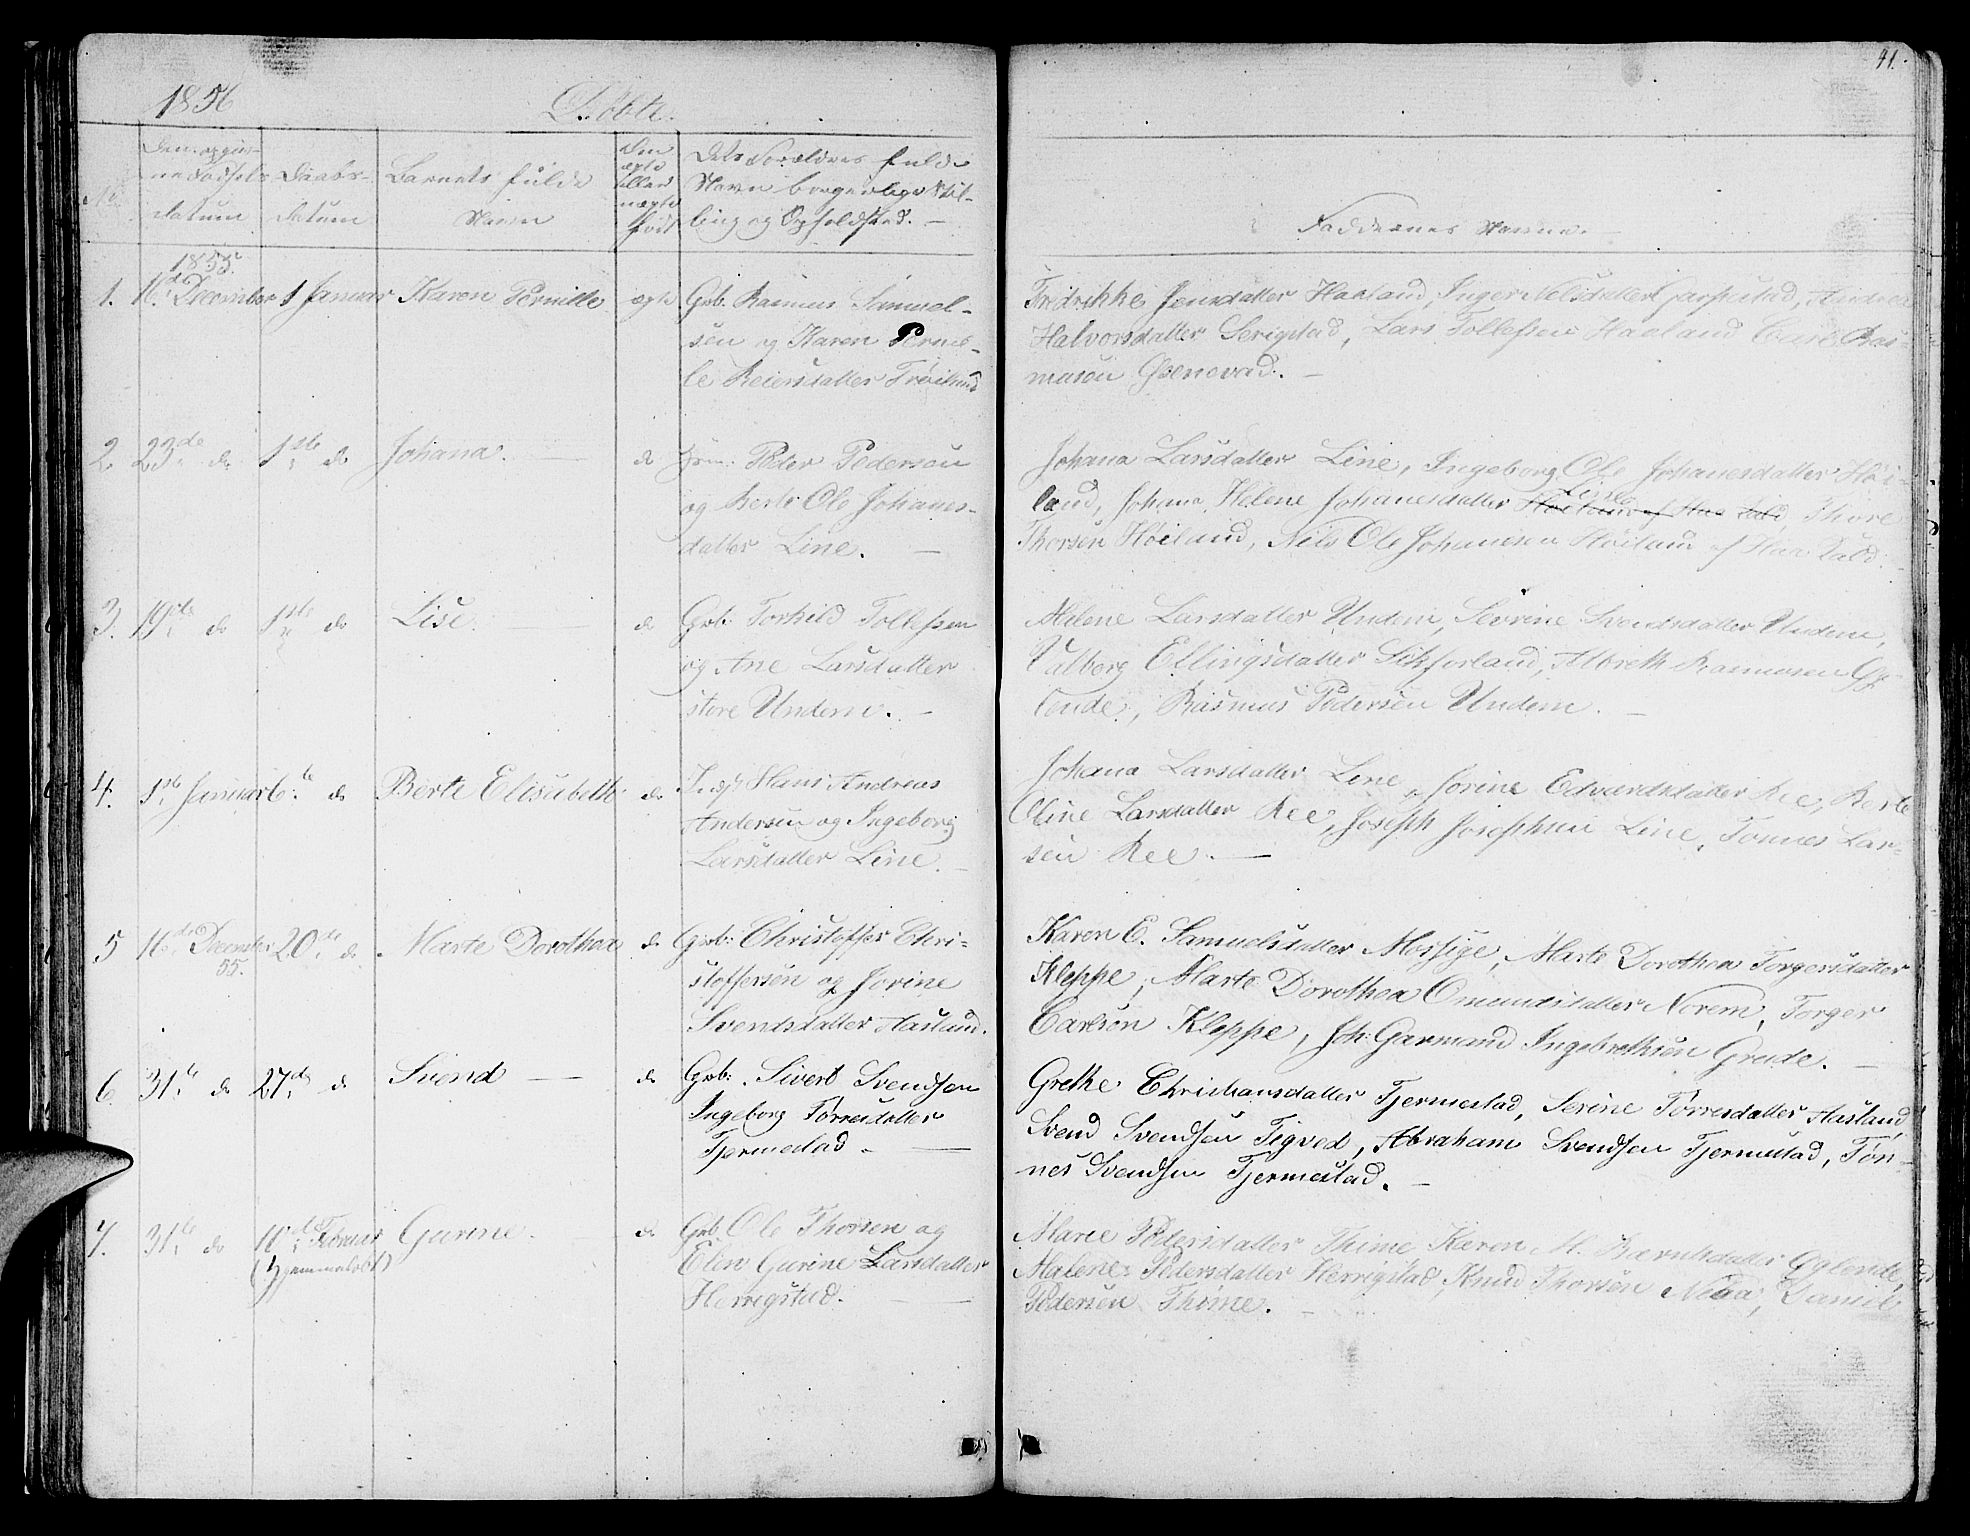 1856 Döbte.
41.
No
Den opgiv-
ne Fødsels
datum
Daabs-
datum
Barnets fulde
Navn
Om
ægte
eller
uægte
født
Dets Forældres fulde
Navn borgerlige Stil-
ling og Opholdsted. —
Faddernes Navne. —
1855.
1. 16de December 1 Januar Karen Pernille ægte Grb. Rasmus Samuel-
sen og Karen Pernil-
le Reiersdatter
Fredrikke Jensdatter Haaland, Inger Nelsdatter Andrea
Halvorsdatter Serigstad, Lars Tollefsen Haaland Carl Ras-
musen
2. 23de do 1ste do Johana. — do Peder Pedersen
og Berte Ole Johanes-
datter Line. —
Johana Larsdatter Line, Ingeborg Ole Johanesdatter Høi-
land, Johana Helene Johanesdatter Line Thore
Thorsen Høiland, Nils Ole Johanesen Høiland af Haa Sald.
3. 19de do 1ste do Lise. do Grb. Torkild Tollefsen
og Ane Larsdatter
store Undem. —
Malene Larsdatter Undem, Sevrine Svendsdatter Undem,
Valborg Ellingsdatter Albreth Rasmusen Gg-
lende, Rasmus Pedersen Undem. —
4. 1ste Januar 6te do Berte Elisabeth do Hans Andreas
Andersen og Ingeborg
Larsdatter Line. —
Johana Larsdatter Line, Jorine Edvardsdatter Ree, Berte
Oline Larsdatter Ree, Joseph Josephsen Line, Tønnes Lar-
sen Ree. —
5 16de December 20de do Marte Dorothea do Grb: Christoffer Chri-
55.
stoffersen og Jorine
Svendsdatter Aasland.
Karen E. Samuelsdatter Mossige, Marte Dorothea Torgersdatter
Kleppe, Marte Dorothea Omundsdatter Norem, Torger
Carlson Kleppe, Joh: Garmand Ingebrethsen Grude. —
6. 31te do 27de do Svend — do Grb: Sivert Svendsen
Ingeborg Torresdatter
Tjermestad. —
Grethe Christiansdatter Tjermestad, Serine Torresdatter Aasland
Svend Svendsen Tigved, Abraham Svendsen Tjermestad, Tøn-
nes Svendsen Tjermestad. —
7. 31te do 10de Februar Gurine. do Grb. Ole Thorsen og
(Hjemmedøbt)
Elen Gurine Larsdatter
Herrigstad. —
Marie Pedersdatter Thime, Karen M. Gglende,
Malene Pedersdatter Herrigstad, Knud Thorsen Daniel
Pedersen Thime. —